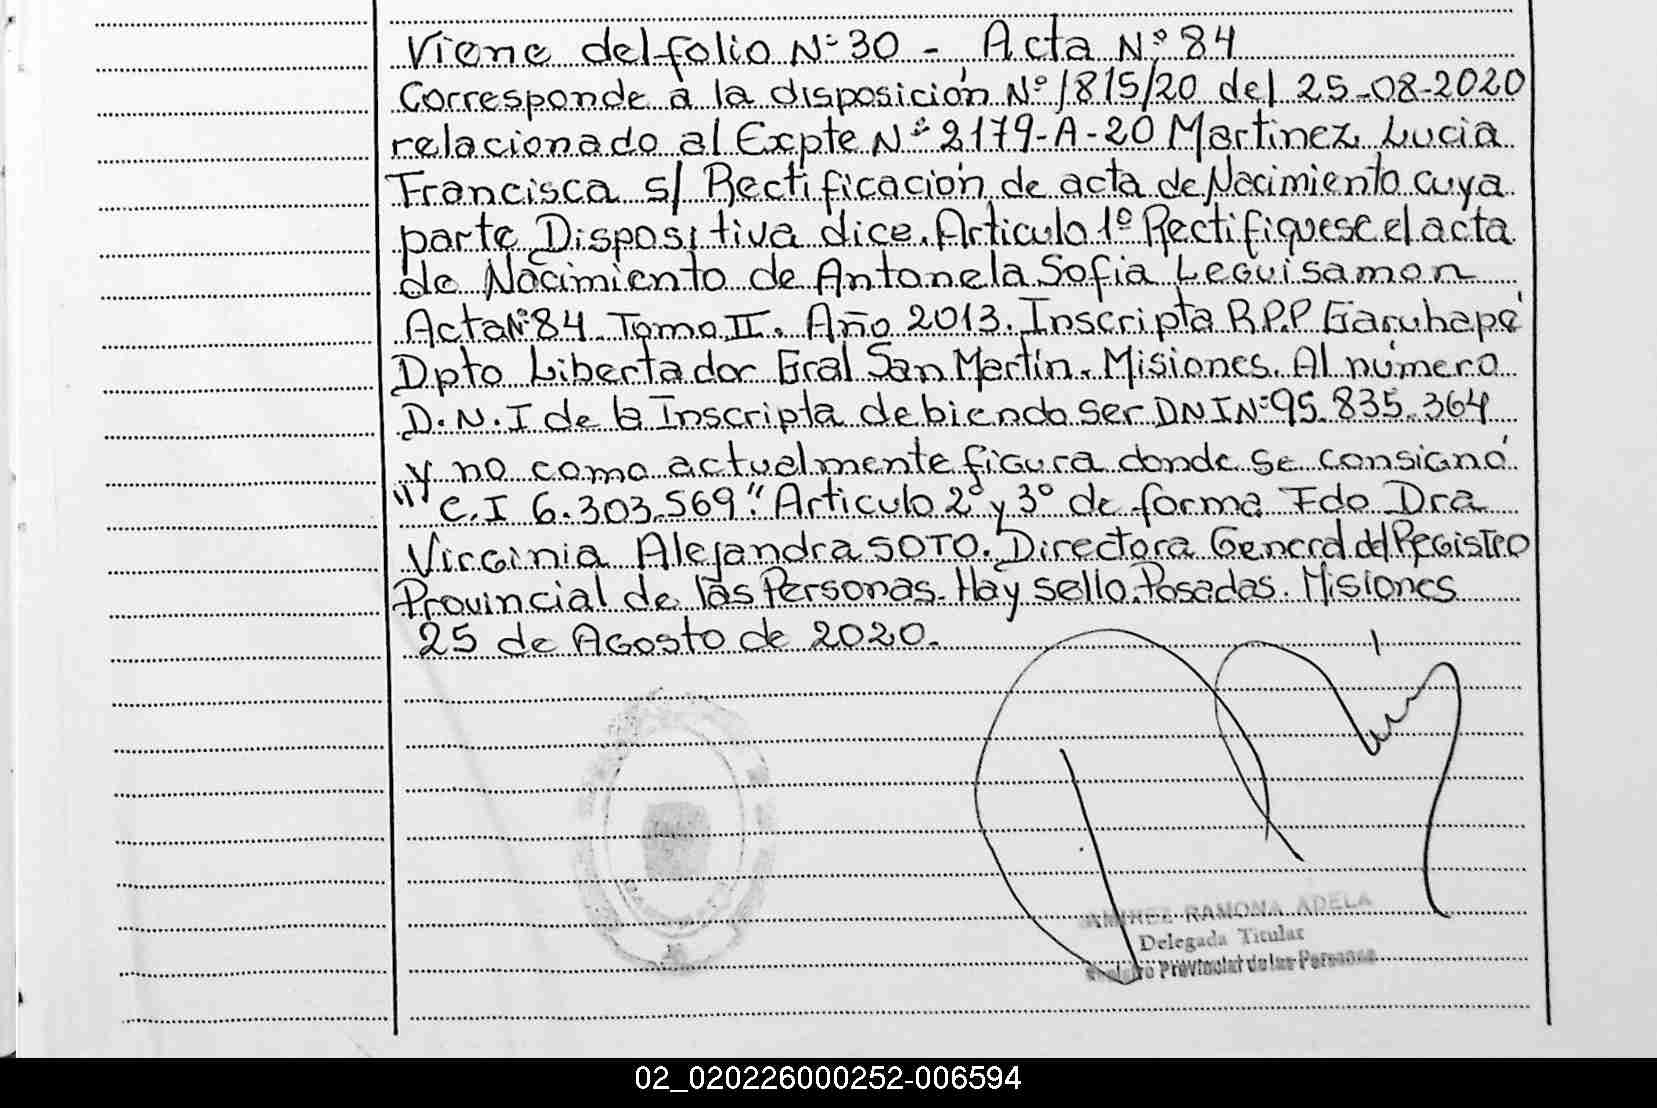 Viene del folio Nº 30 - Acta Nº 84
Corresponde a la disposición Nº 1815/20 del 25-08-2020
relacionado al Expte Nº 2179-A-20 Martinez Lucia
Francisca s/ Rectificación de acta de Nacimiento cuya
parte Dispositiva dice. Articulo 1º Rectifiquese el acta
de Nacimiento de Antonela Sofia Leguisamon
Acta Nº 84. Tomo II. Año 2013. Inscripta R.P.P Garuhapé
Dpto Libertador Gral San Martín. Misiones. Al número
D.N.I de la Inscripta debiendo ser DNI Nº 95.835.364
y no como actualmente figura donde se consignó
"C.I 6.303.569." Articulo 2º y 3º de forma Fdo Dra
Virginia Alejandra SOTO. Directora General del Registro
Provincial de las Personas. Hay sello. Posadas. Misiones
25 de Agosto de 2020.
RAMONA ADELA
Delegada Titular
Provincial de las Personas
02_020226000252-006594